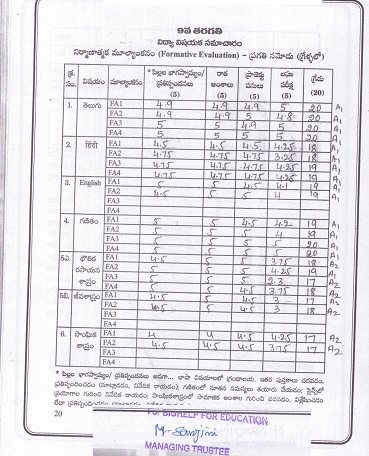 9వ తరగతి
విద్యా విషయక సమాచారం
నిర్మాణాత్మక మూల్యాంకనం (Formative Evaluation) - ప్రగతి నమోదు (గ్రేడ్లలో)
క్ర. సం. విషయం మూల్యాంకనం * పిల్లల భాగస్వామ్యం/ ప్రతిస్పందనలు (5) రాత అంశాలు (5) ప్రాజెక్టు పనులు (5) లఘు పరీక్ష (5) గ్రేడు (20)
1. తెలుగు FA1 4.9 4.9 4.9 5 20 A1
FA2 4.9 4.9 5 4.8 20 A1
FA3 5 5 4.9 5 20 A1
FA4 5 5 5 5 20 A1
2. हिंदी FA1 4.5 4.5 4.5 4.25 18 A2
FA2 4.75 4.75 4.75 3.25 18
FA3 4.75 4.75 4.75 4.25 19
FA4 4.75 4.75 4.75 4.25 19
3. English FA1 5 5 4.5 4.1 19
FA2 4.5 5 5 4 19 A1
FA3
FA4
4. గణితం FA1 5 5 4.5 4.2 19 A1
FA2 5 5 5 4 19 A1
FA3 5 5 5 5 20 A1
FA4 5 5 5 5 20 A1
5ఎ. భౌతిక రసాయన శాస్త్రం FA1 4.5 5 5 3.75 18 A2
FA2 5 5 5 4.25 19
FA3 5 5 5 2.3 17 A2
FA4 5 5 4.5 3.75 18 A2
5బి. జీవశాస్త్రం FA1 4.5 5 4.5 3 17 A2
FA2 4.5 5 4.5 3 18 A2
FA3
FA4
6. సాంఘిక శాస్త్రం FA1 4 4 4.5 4.25 17 A2
FA2 4.5 4.5 4.5 3.75 17 A2
FA3
FA4
* పిల్లల భాగస్వామ్యం/ ప్రతిస్పందనలు అనగా... భాషా విషయాలలో గ్రంథాలయ, ఇతర పుస్తకాలు చదవడం,
ప్రతిస్పందించడం (మాట్లాడడం, నివేదిక రాయడం); గణితంలో నూతన సమస్యలు తయారు చేయడం; సైన్స్‌లో
ప్రయోగాల గురించి నివేదిక రాయడం; సాంఘికశాస్త్రంలో సామాజిక అంశాల గురించి చదవడం, విశ్లేషించడం
20
For BIGHELP FOR EDUCATION
M. Sarojini
MANAGING TRUSTEE